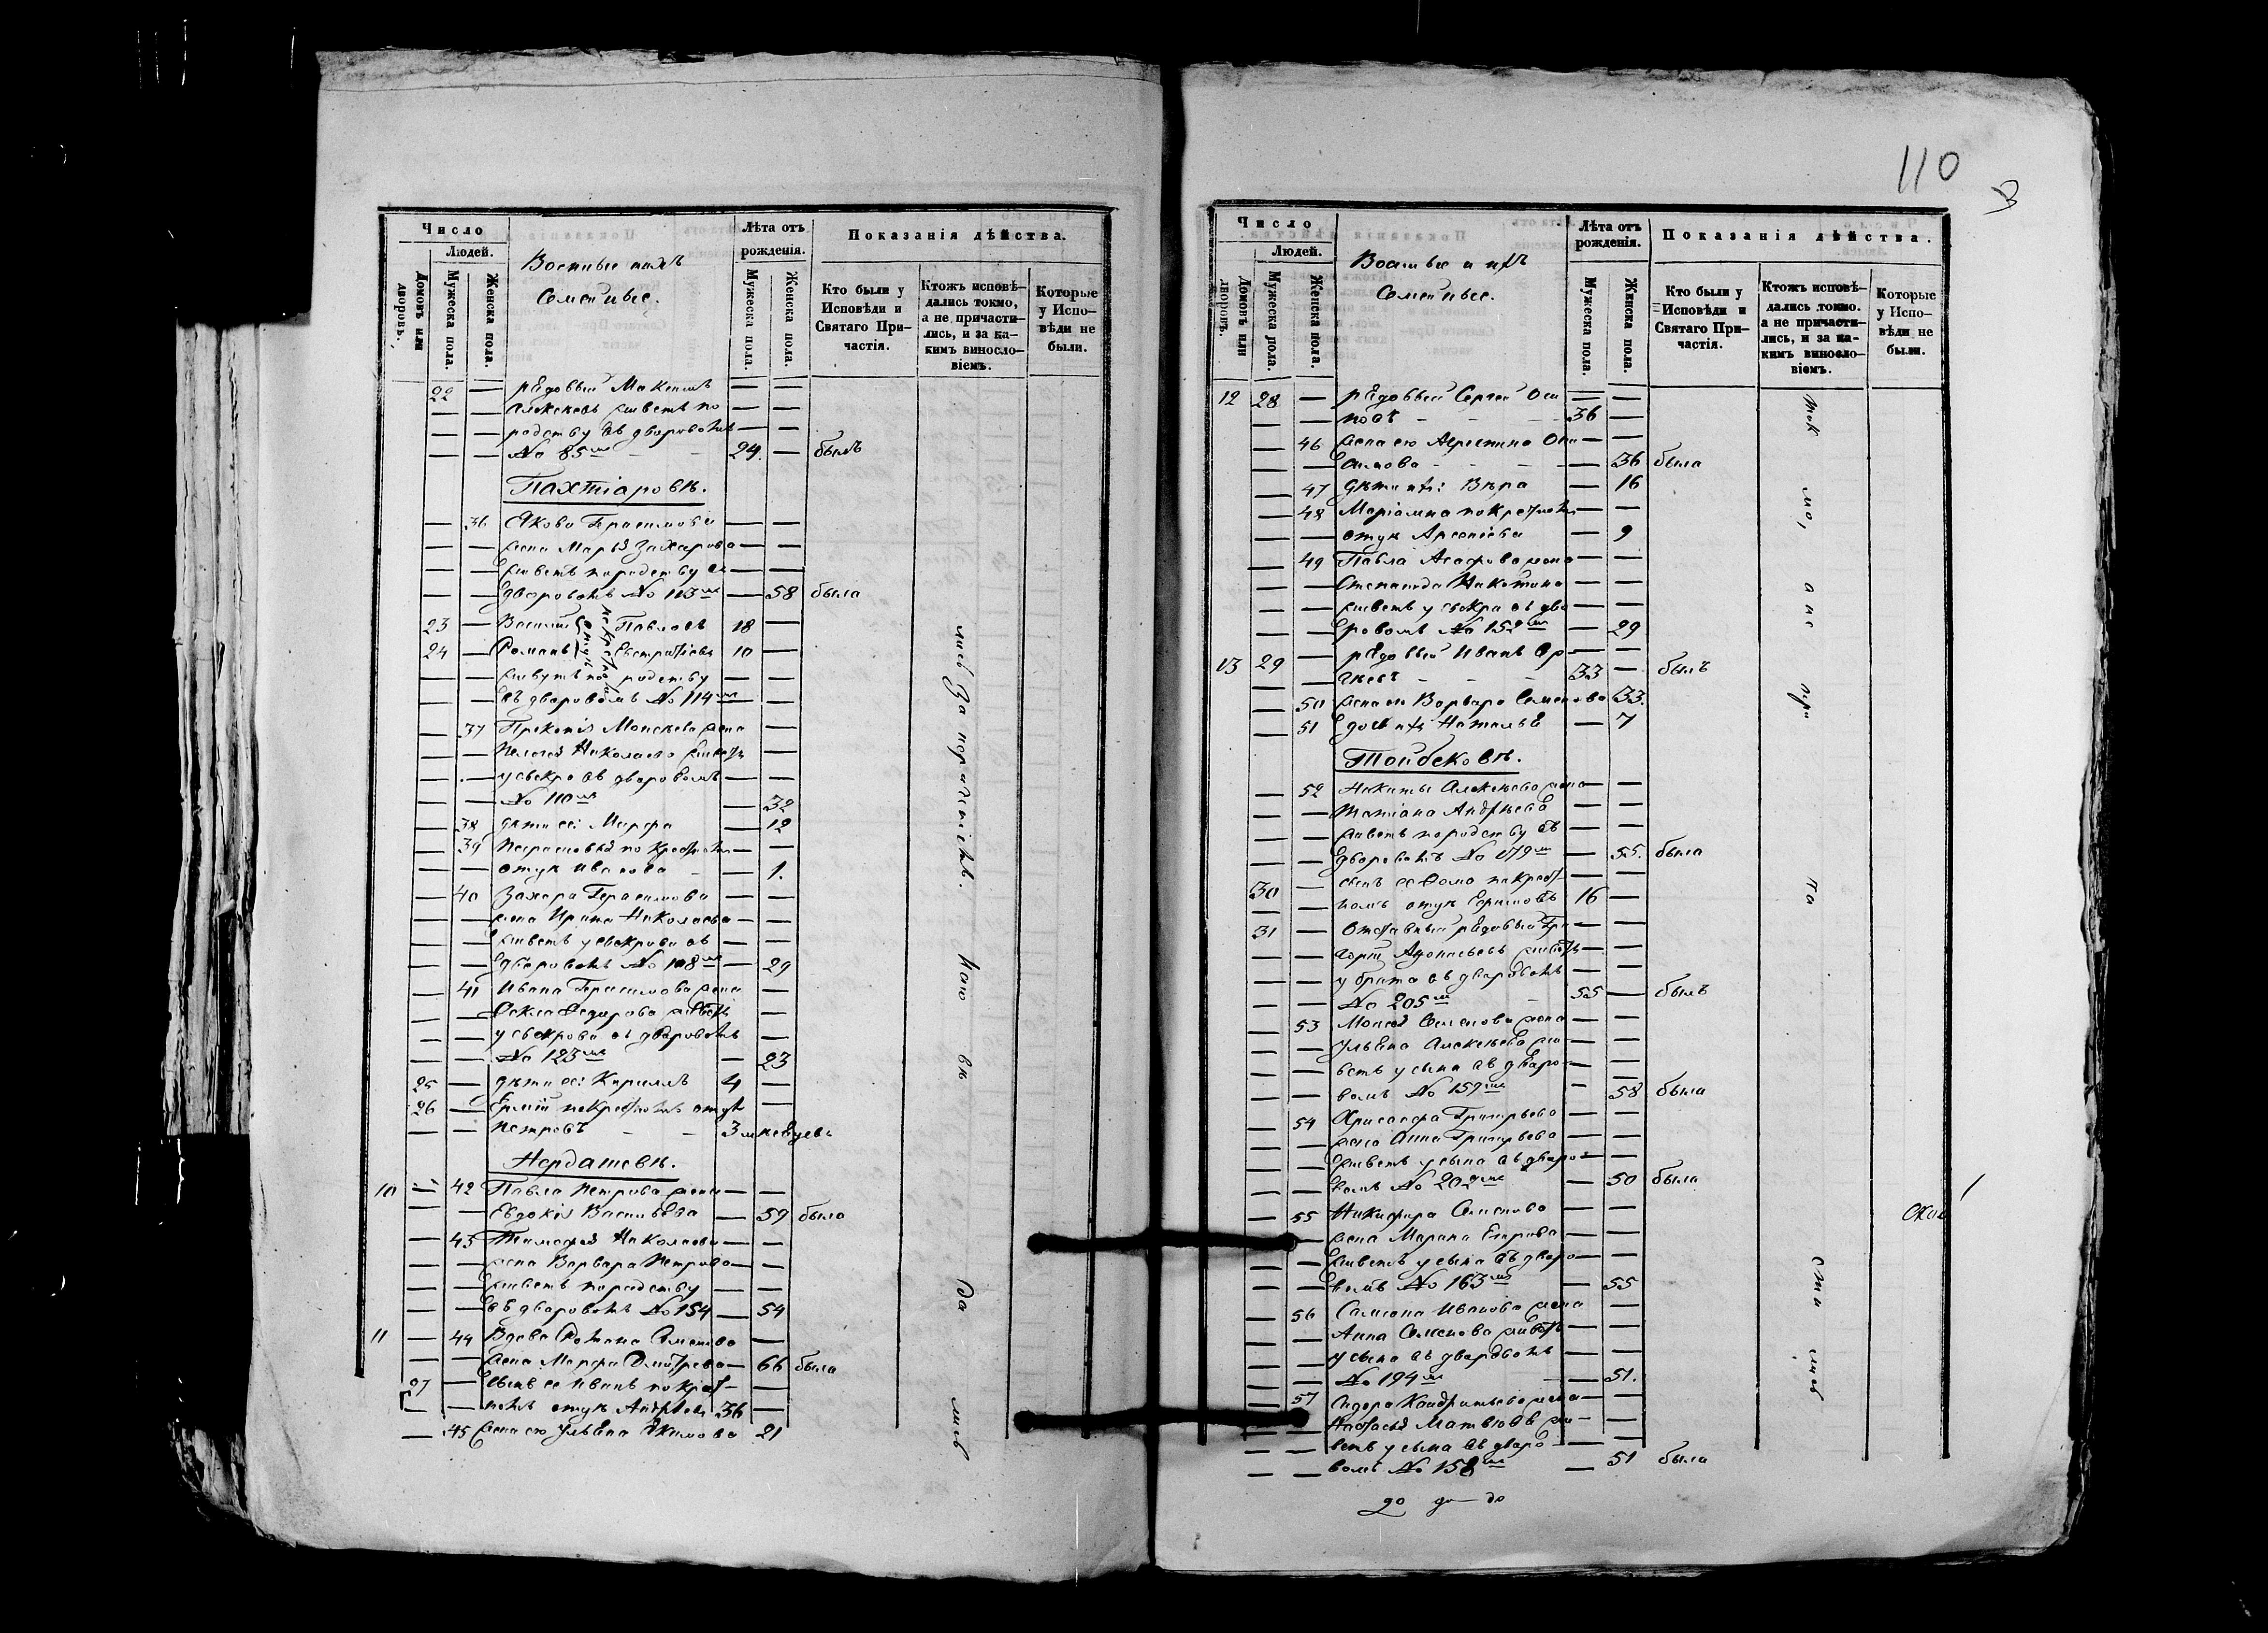 Число
Людей.
Домовъ или дворовъ.
Мужеска пола.
Женска пола.
Военные и ихъ
Семейные.
Лѣта отъ рожденія.
Мужеска пола.
Женска пола.
Показанія дѣйства.
Кто были у Исповѣди и Святаго Причастія.
Ктожъ исповѣдались токмо, а не причастились, и за какимъ винословіемъ.
Которые у Исповѣди не были.
22 — рядовый Максимъ — —
— — Алексеевъ живетъ по — —
— — родству въ дворовомъ — —
— — № 85мъ — — 24. — былъ
Пахтіяровѣ.
— 36 Якова Герасимова — —
— — жена Марья Захарова — —
— — живетъ по родству въ — —
— — дворовомъ № 113мъ — 58 была
23 — Василій Павловъ 18 —
24 — Романъ Евстратіевъ 10 —
по крестномъ отцѣ
— — живутъ по родству — —
— — въ дворовомъ № 114мъ — —
— 37 Прокопія Моисеева жена —
— — Пелагея Николаева живетъ —
— — у свекра въ дворовомъ — —
— — № 110мъ — 32
— 38 дѣти её: Марфа — 12
— 39 Парасковья по крестномъ — —
— — отцѣ Иванова — — 1.
— 40 Захара Герасимова — —
— — жена Ирина Николаева — —
— — живетъ у свекрови въ — —
— — дворовомъ № 108мъ — 29
— 41 Ивана Герасимова жена —
— — Фекла Федорова живетъ —
— — у свекрови въ дворовомъ —
— — № 123мъ — 23
25 — дѣти её: Кириллъ 4 —
26 — по крестномъ отцѣ —
— — Петровъ — — 3 мѣсяцевъ
42 Павла Петрова жена — —
10 — — Евдокія Васильева — 59 была
— 43 Тимофея Николаева — —
— — жена Варвара Петрова — —
— — живетъ по родству — —
— — въ дворовомъ № 154 — 54
11 — 44 Вдова —
— — жена Марфа Дмитріева — 66 была
27 — сынъ ее Иванъ по крест- —
— — номъ отцѣ Андреевъ 36 —
— 45 жена его Ульяна Екимова 21
лись за нерадѣніемъ.
110
Число
Людей.
Домовъ или дворовъ.
Мужеска пола.
Женска пола.
Военные и ихъ
Семейные.
Лѣта отъ рожденія.
Мужеска пола.
Женска пола.
Показанія дѣйства.
Кто были у Исповѣди и Святаго Причастія.
Ктожъ исповѣдались токмо. а не причастились, и за какимъ винословіемъ.
Которые у Исповѣди не были.
12 28 — рядовый Сергей Оси — —
— — повъ — — — 36 —
— 46 жена его — —
— — — — — — 36 была
— 47 дѣти ихъ: Вѣра — 16
— 48 Маріамна по крестномъ — —
— — отцѣ Арсеніева — 9
— 49 Павла жена — —
— — Степанида Никитина — —
— — живетъ у свекра въ дво — —
— — ровомъ № 152мъ — 29
13 29 — рядовый Иванъ — —
— — — — — 33 — былъ
— 50 жена его Варвара Семенова 33.
— 51 дочь ихъ Наталья — 7
Тойбековѣ.
— 52 Никиты Алексеева жена — —
— — Татіана Андреева — —
— — живетъ по родству въ — —
— — дворовомъ № 179мъ — 55. была
30 — сынъ ее Фома по крест- — —
— — номъ отцѣ Ефимовъ 16 —
31 — Отставный рядовый Гри — —
— — горій Афонасьевъ живетъ — —
— — у брата въ дворовомъ — —
— — № 205мъ — 55 — былъ
— 53 Моисея Семенова жена — —
— — Ульяна Алексеева жи- — —
— — ветъ у сына въ дворо- — —
— — вомъ № 159мъ — 58 была
— 54 Григорьева — —
— — жена Анна Григорьева — —
— — живетъ у сына въ дворо- — —
— — вомъ № 202мъ — 50 была
— 55 Никифора Семенова — —
— — жена Марина Егорова — —
— — живетъ у сына въ дворо- — —
— — вомъ № 163мъ — 55
— 56 Самсона Иванова жена —
— — Анна Семенова живетъ — —
— — у сына въ дворовомъ — —
— — № 194мъ — 51.
— 57 Сидора Кондратьева жена — —
— — Настасья Матвѣева жи- — —
— — ветъ у сына въ дворо- — —
— — вомъ № 158мъ — 51 была
ток мо, а не при ча сти лись